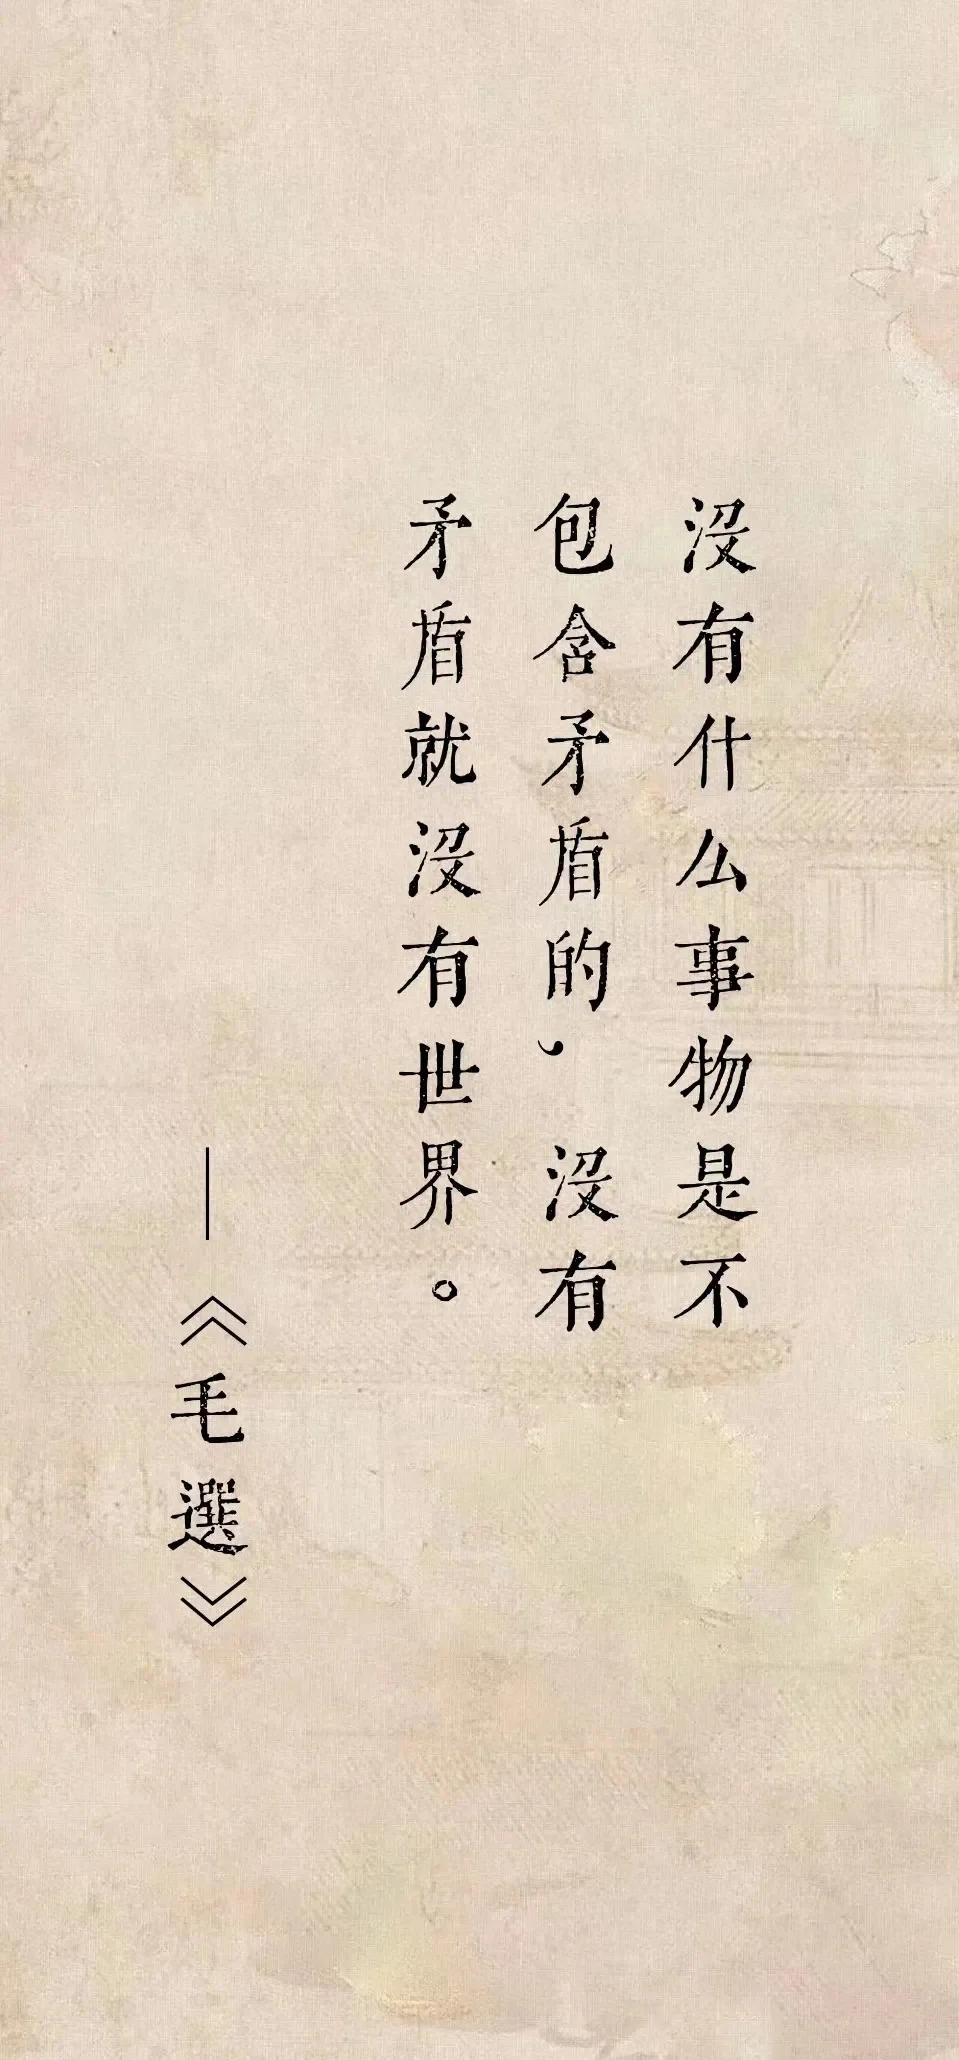 没有什么事物是不
包含矛盾的，没有
矛盾就没有世界。
—《毛選》